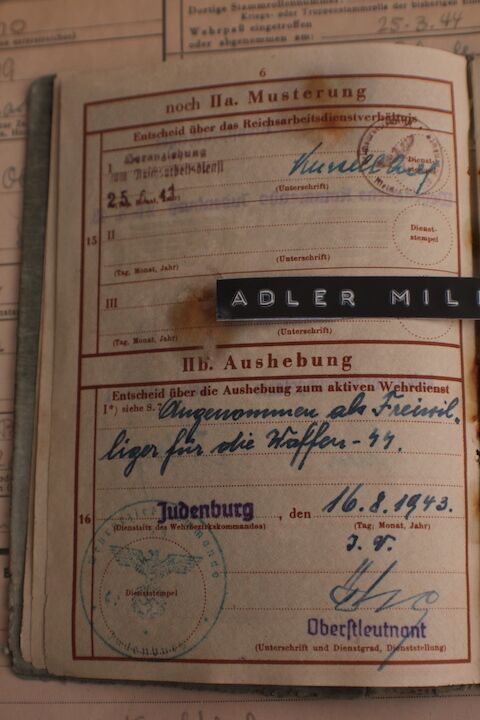 Dortige Stammrollennummer:
Kriegs- oder Truppenstammrolle der bisherigen Ein
Wehrpaß eingetroffen
oder abgenommen am:
25.3.44
6
noch IIa. Musterung
Entscheid über das Reichsarbeitsdienstverhältnis
I Heranziehung
zum Reichsarbeitsdienst
25. 6. 42
(Unterschrift)
15 II
Dienst-
stempel
(Tag, Monat, Jahr)
(Unterschrift)
III
ADLER MILI
(Tag, Monat, Jahr)
(Unterschrift)
IIb. Aushebung
Entscheid über die Aushebung zum aktiven Wehrdienst
I*) siehe S. 7 Angenommen als Freiwil-
liger für die Waffen-SS.
16 Judenburg, den 16.8.1943.
(Dienstsitz des Wehrbezirkskommandos)
(Tag, Monat, Jahr)
J. V.
Dienststempel
Judenburg
Oberstleutnant
(Unterschrift und Dienstgrad, Dienststellung)